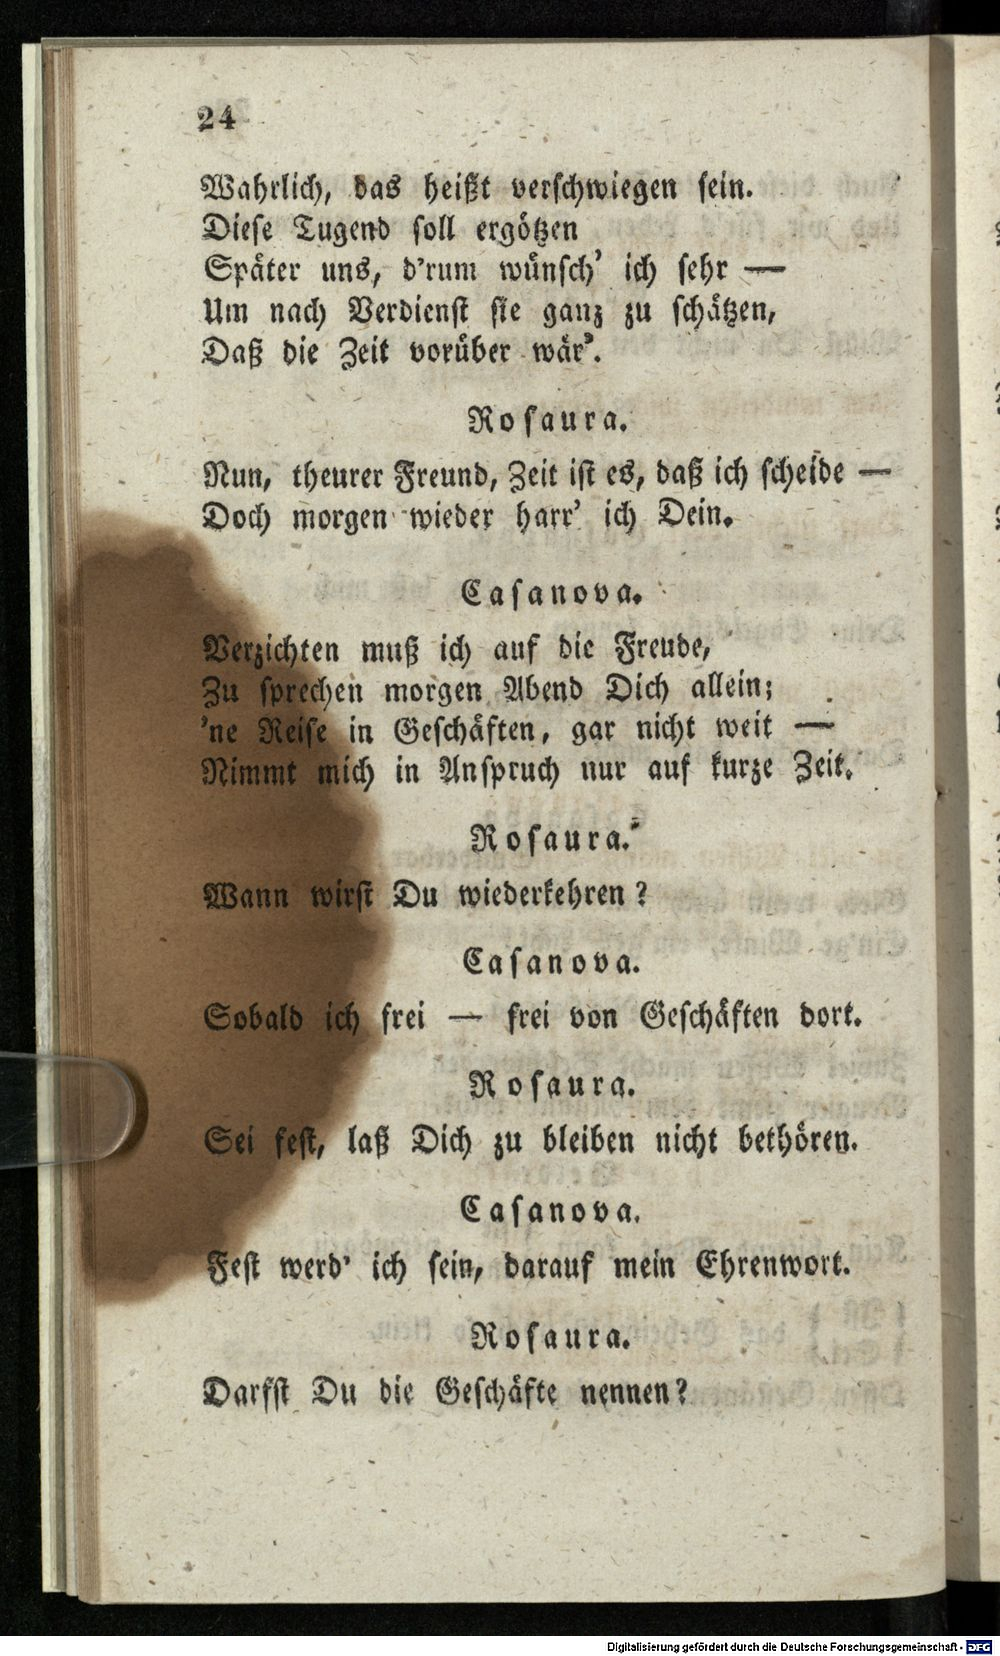 24
Wahrlich, das heißt verschwiegen sein.
Diese Tugend soll ergötzen
Später uns, d'rum wünsch' ich sehr —
Um nach Verdienst sie ganz zu schätzen,
Daß die Zeit vorüber wär'.
Rosaura.
Nun, theurer Freund, Zeit ist es, daß ich scheide —
Doch morgen wieder harr' ich Dein.
Casanova.
Verzichten muß ich auf die Freude,
Zu sprechen morgen Abend Dich allein;
'ne Reise in Geschäften, gar nicht weit —
Nimmt mich in Anspruch nur auf kurze Zeit.
Rosaura.
Wann wirst Du wiederkehren?
Casanova.
Sobald ich frei — frei von Geschäften dort.
Rosaura.
Sei fest, laß Dich zu bleiben nicht bethören.
Casanova.
Fest werd' ich sein, darauf mein Ehrenwort.
Rosaura.
Darfst Du die Geschäfte nennen?
Digitalisierung gefördert durch die Deutsche Forschungsgemeinschaft - DFG